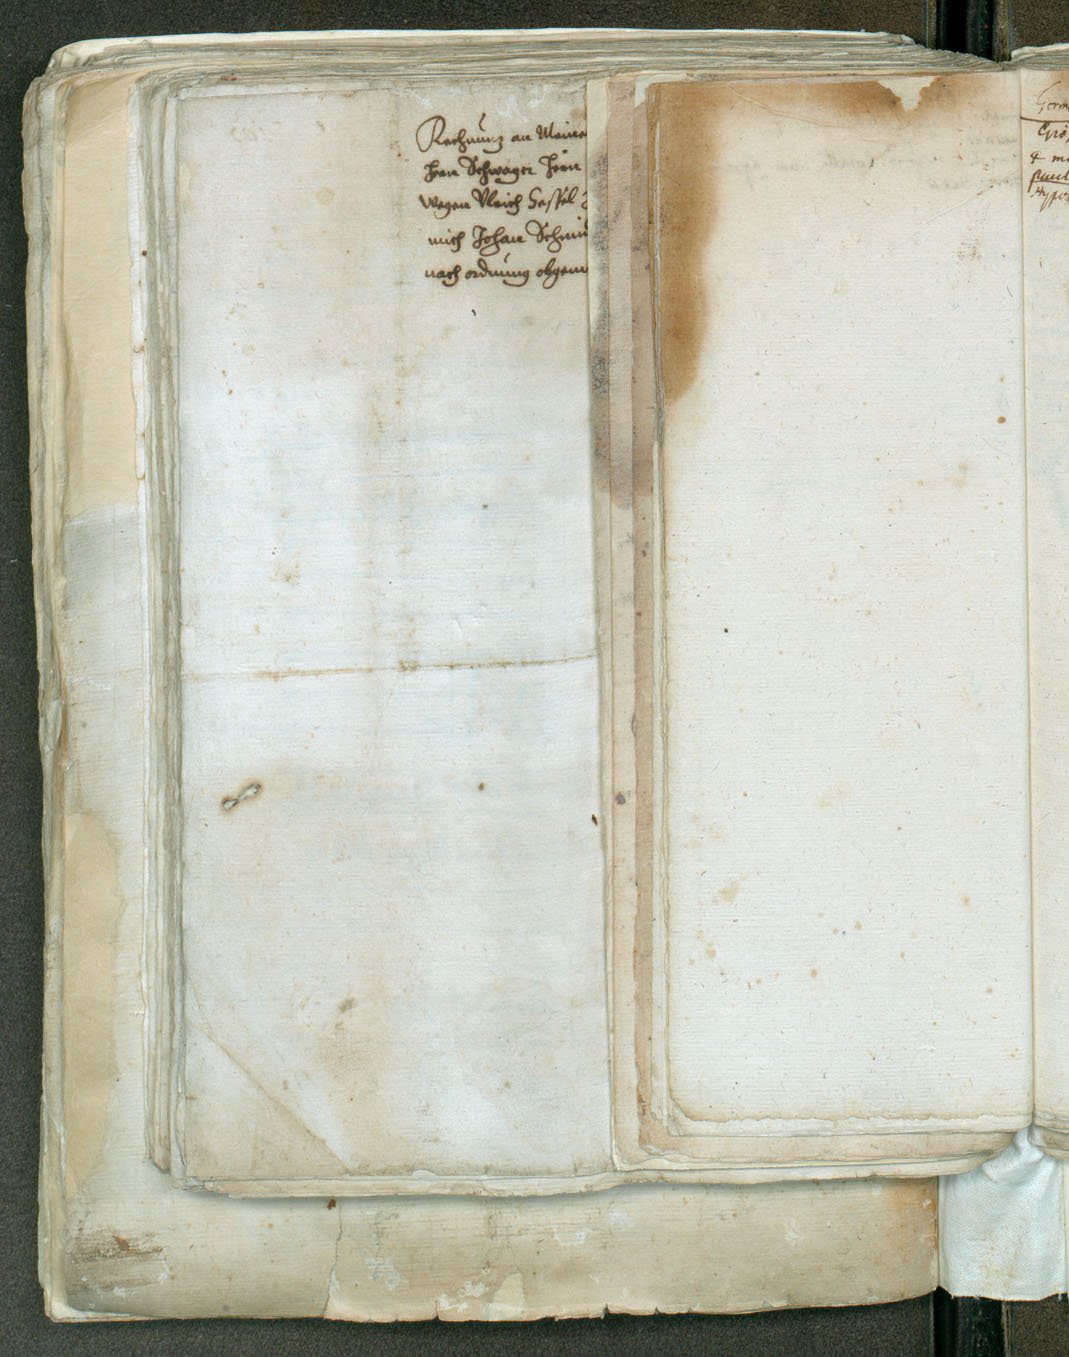 Rechnung an Meine
Herr Schwager Herr
Wegen Ulrich Hessel
mich Johan Schmi
nach ordnung obgem
Germ
Grö
& m
paul
Hypo